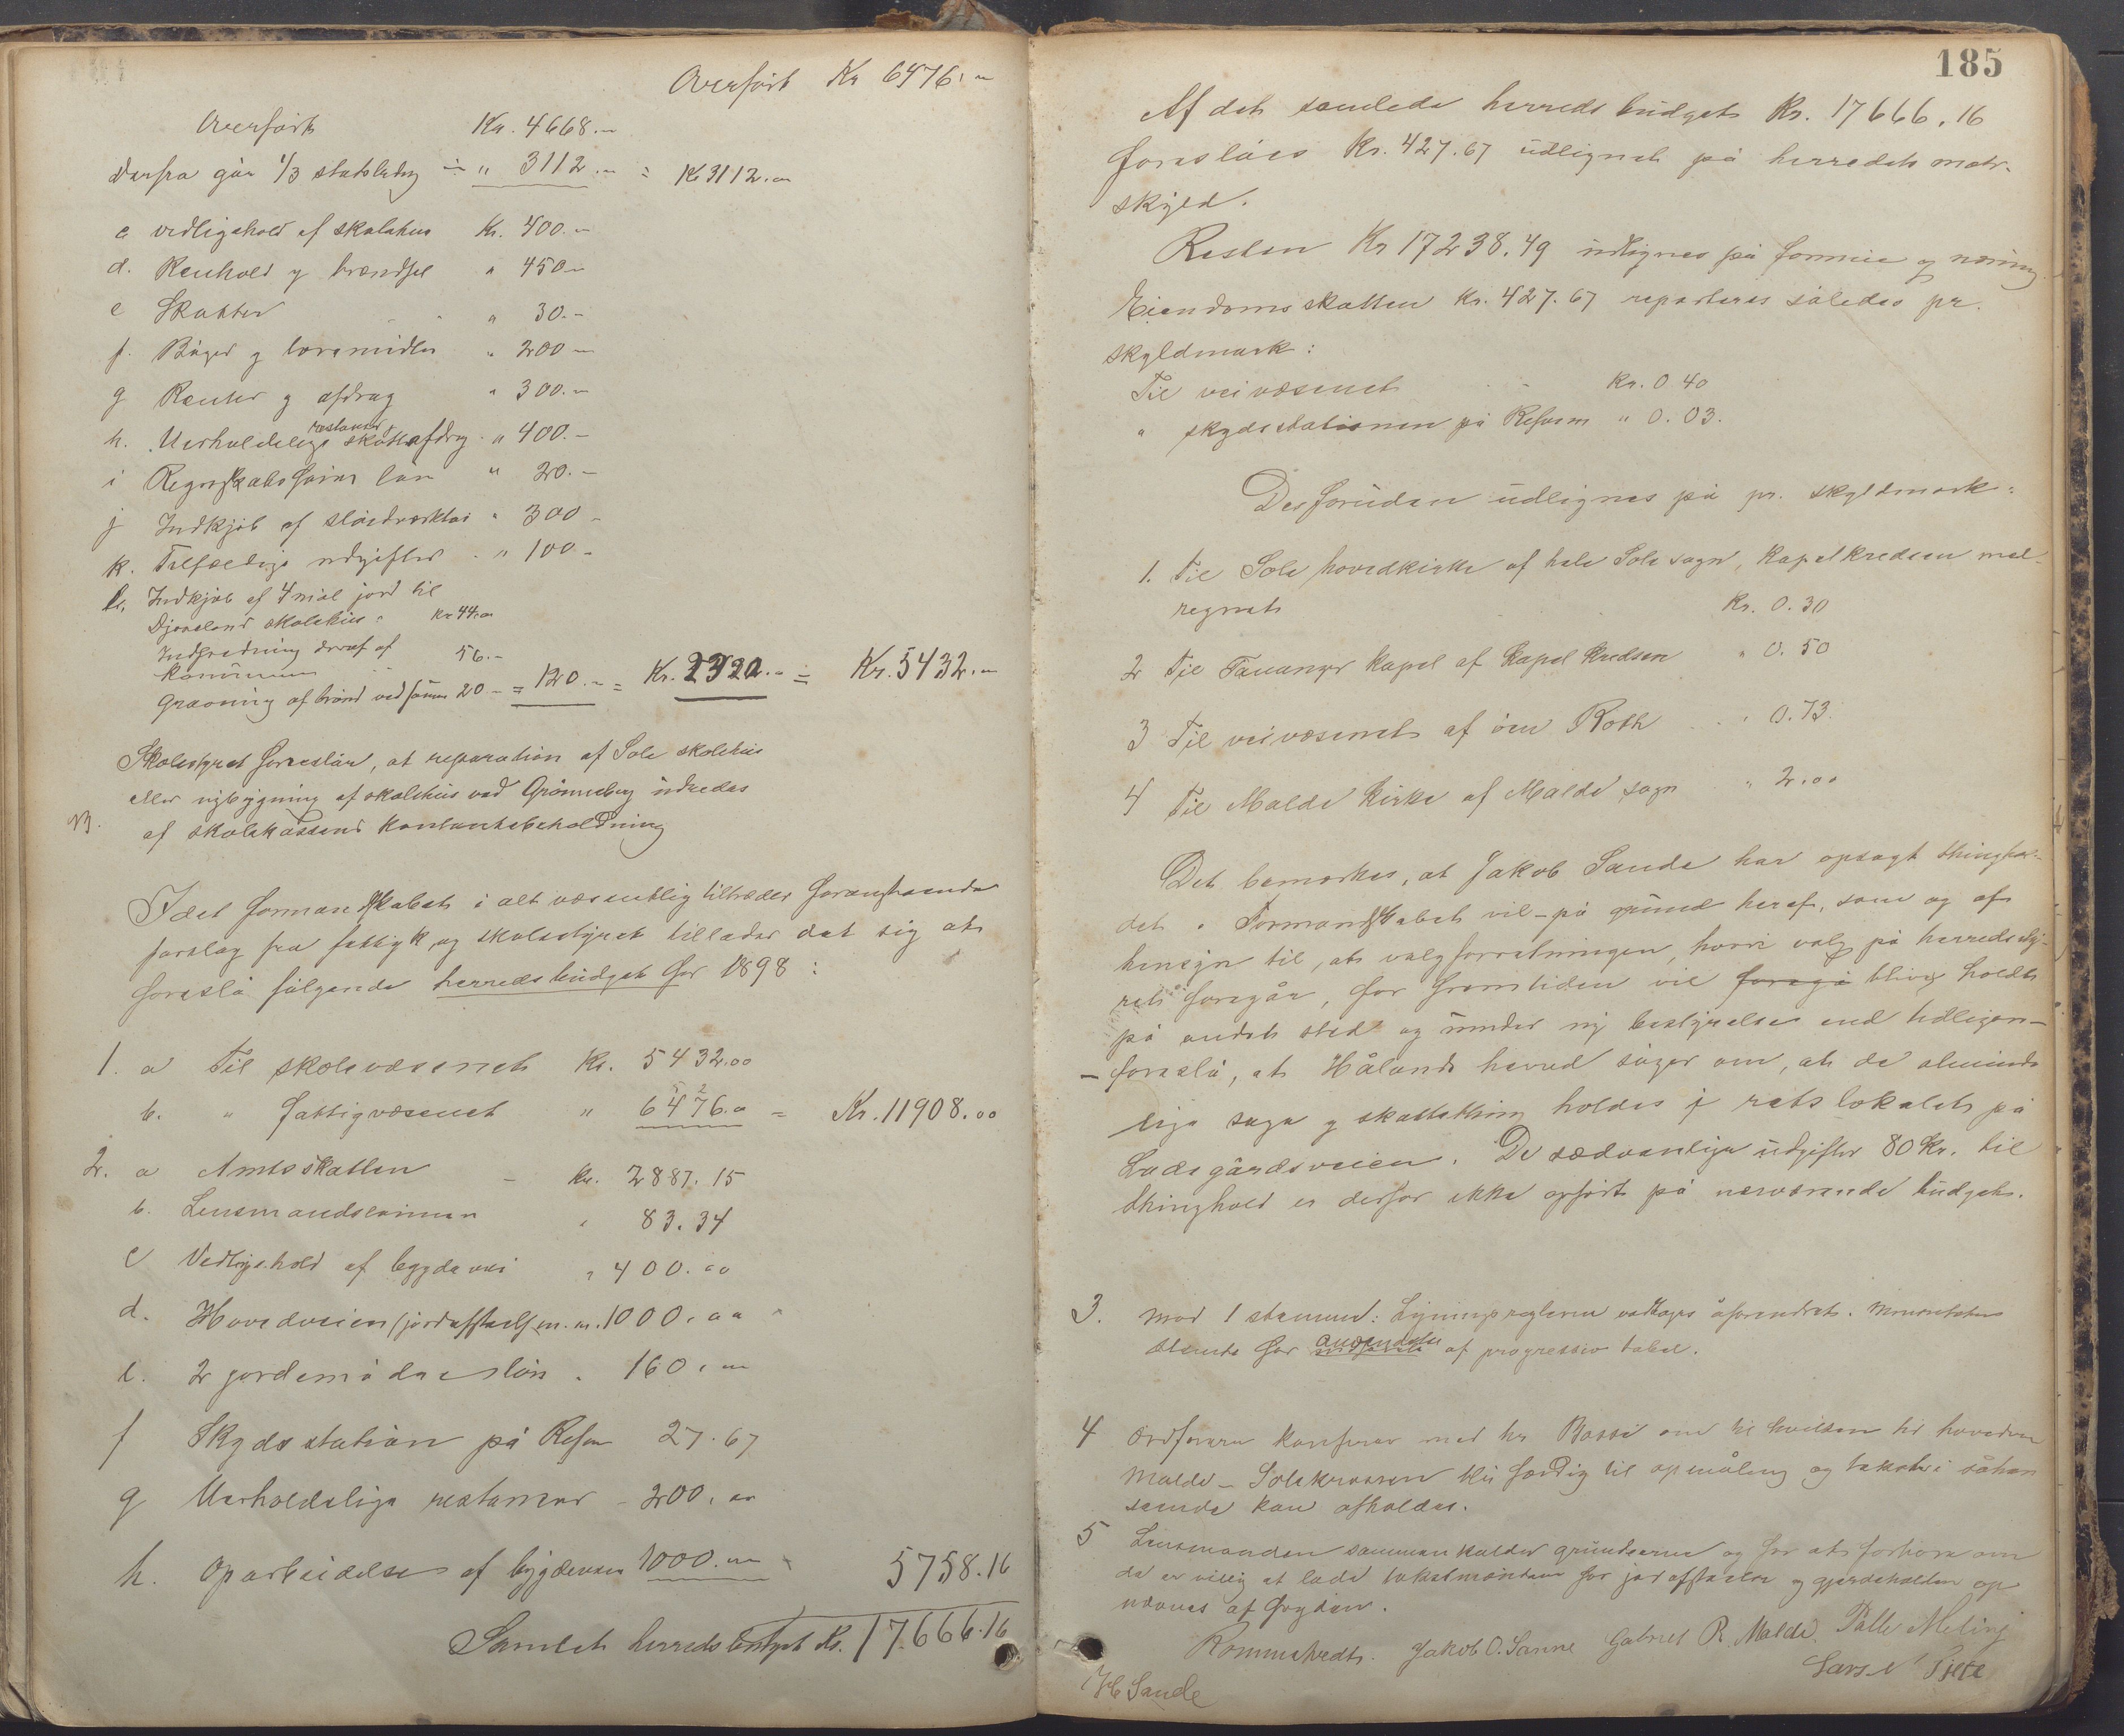 Overført Kr 6476.-
Overført Kr. 4668.-
Derfra går 1/3 statsbidrag ÷ " 3112.- = Kr 3112.00
c vedligehold af skolehus Kr. 400.-
d. Renhold og brændsel " 450.-
e Skatter " 30.-
f. Bøger og læremidler " 200.-
g Renter og afdrag " 300.-
h. Uerholdelige restancer skatteafdrag " 400.-
i Regnskabsførers løn " 20.-
j Indkjøb af sløidverktøi " 300.-
k. Tilfældige udgifter " 100.-
l. Indkjøb af 4 mål jord til
Djoneland skolehus Kr 44.00
Indfredning deraf af 56.-
kommunen
Gravning af brønd ved samme 20 - = 120.- = Kr. 2320.- = Kr. 5432.-
Skolestyret foreslår, at reparation af Sole skolehus
eller nybygning af skolehus ved Grønneberg udredes
af skolekassens kontantbeholdning
Idet formandskabet i alt væsentlig tiltræder foranstående
forslag fra fattigk. og skolestyret tillader det sig at
foreslå følgende herredsbudget for 1898:
1. a Til skolevæsenet Kr. 5432.00
b. " fattigvæsenet " 6476.00 = Kr. 11908.00
2. a Amtsskatten - Kr. 2887.15
b. Lensmandslønnen " 83.34
c Vedligehold af bygdevei " 400.00
d. Hovedveien (jordafståelse m.m. 1000.00
e. 2 jordemødres løn " 160.00
f Skydsstation på Refsn 27.67
g Uerholdelige restancer - 200.00
h. Oparbeidelse af bygdeveie 1000.00 5758.16
Samlet herredsbudget Kr. 17.666.16
185
Af det samlede herredsbudget Kr. 17666.16
foreslåes Kr. 427.67 udlignet på herredets matr.
skyld.
Resten Kr 17238.49 udlignes på formue og næring
Eiendomsskatten Kr. 427.67 reparteres således pr.
skyldmark:
Til veivæsenet Kr. 0 40
" skydsstationen på Refsnes " 0.03.
Desforuden udlignes på pr. skyldmark:
1. Til Sole hovedkirke af hele Sole sogn, kapelkredsen med-
regnet Kr. 0.30
2 Til Tananger kapel af kapelkredsen " 0.50
3 Til veivæsenet af øen Roth " 0.73
4 Til Malde kirke af Malde sogn " 2.00
Det bemærkes, at Jakob Sande har opsagt thinghol-
det. Formandskabet vil - på grund heraf, som og af
hensyn til, at valgforretningen, hvori valg på herredssty-
ret foregår, for fremtiden vil foregå blive holdt
på andet sted og under ny bestyrelse end tidligere -
- foreslå, at Hålands herred søger om, at de alminde
lige sage og skattething holdes i retslokalet på
Ladegårdsveien. De sædvanlige udgifter 80 Kr. til
thinghold er derfor ikke opført på nærværende budget.
3. Mod 1 stemme: Ligningsreglerne vedtages uforandret. Minoriteten
stemte for anvendelse af progressiv tabel.
4 Ordføreren konfererer med hr Bassøe om til hvilken tid hovedvei
Malde - Solekrossen bli færdig til opmåling og takst i såhen
seende kan afholdes.
5 Lensmanden sammenkalder grundeierne og for at forhøre om
de er villig at lade takstmændene for jordafståelse og gjerdeholdet op
nævnes af fogden.
Rommetvedt. Jakob O. Sanne Gabriel R. Malde. Palle Meling
Lars N Tjelta
J G Sande